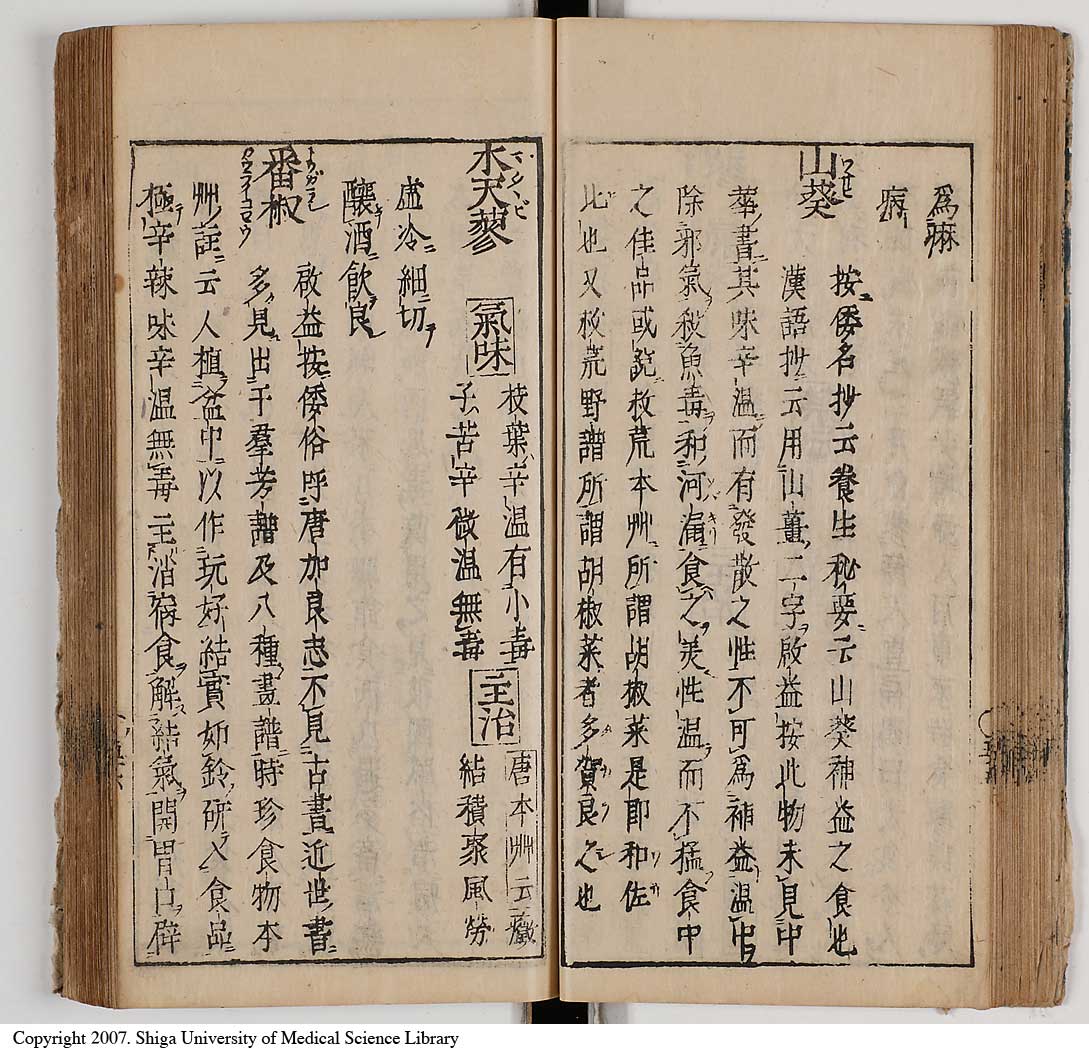 為痳
病
山葵
按倭名抄云養生秘要云山葵補益之食也
漢語抄云用山薑二字啟益按此物未見中
華書其味辛温而有發散之性不可為補益温中
除邪氣殺魚毒和河漏食之美性温而不猛食中
之佳品或説救荒本艸所謂胡椒菜是即和佐
比也又救荒野譜所謂胡椒菜者多賀良之也
木天蓼 氣味 枝葉辛温有小毒
子苦辛微温無毒 主治 唐本艸云癥
結積聚風勞
虚冷細切
釀酒飲良
番椒
啟益按倭俗呼唐加良志不見古書近世書
多見出于羣芳譜及八種畫譜時珍食物本
艸註云人植盆中以作玩好結實如鈴研入食品
極辛辣味辛温無毒主消宿食解結氣開胃口辟
Copyright 2007. Shiga University of Medical Science Library